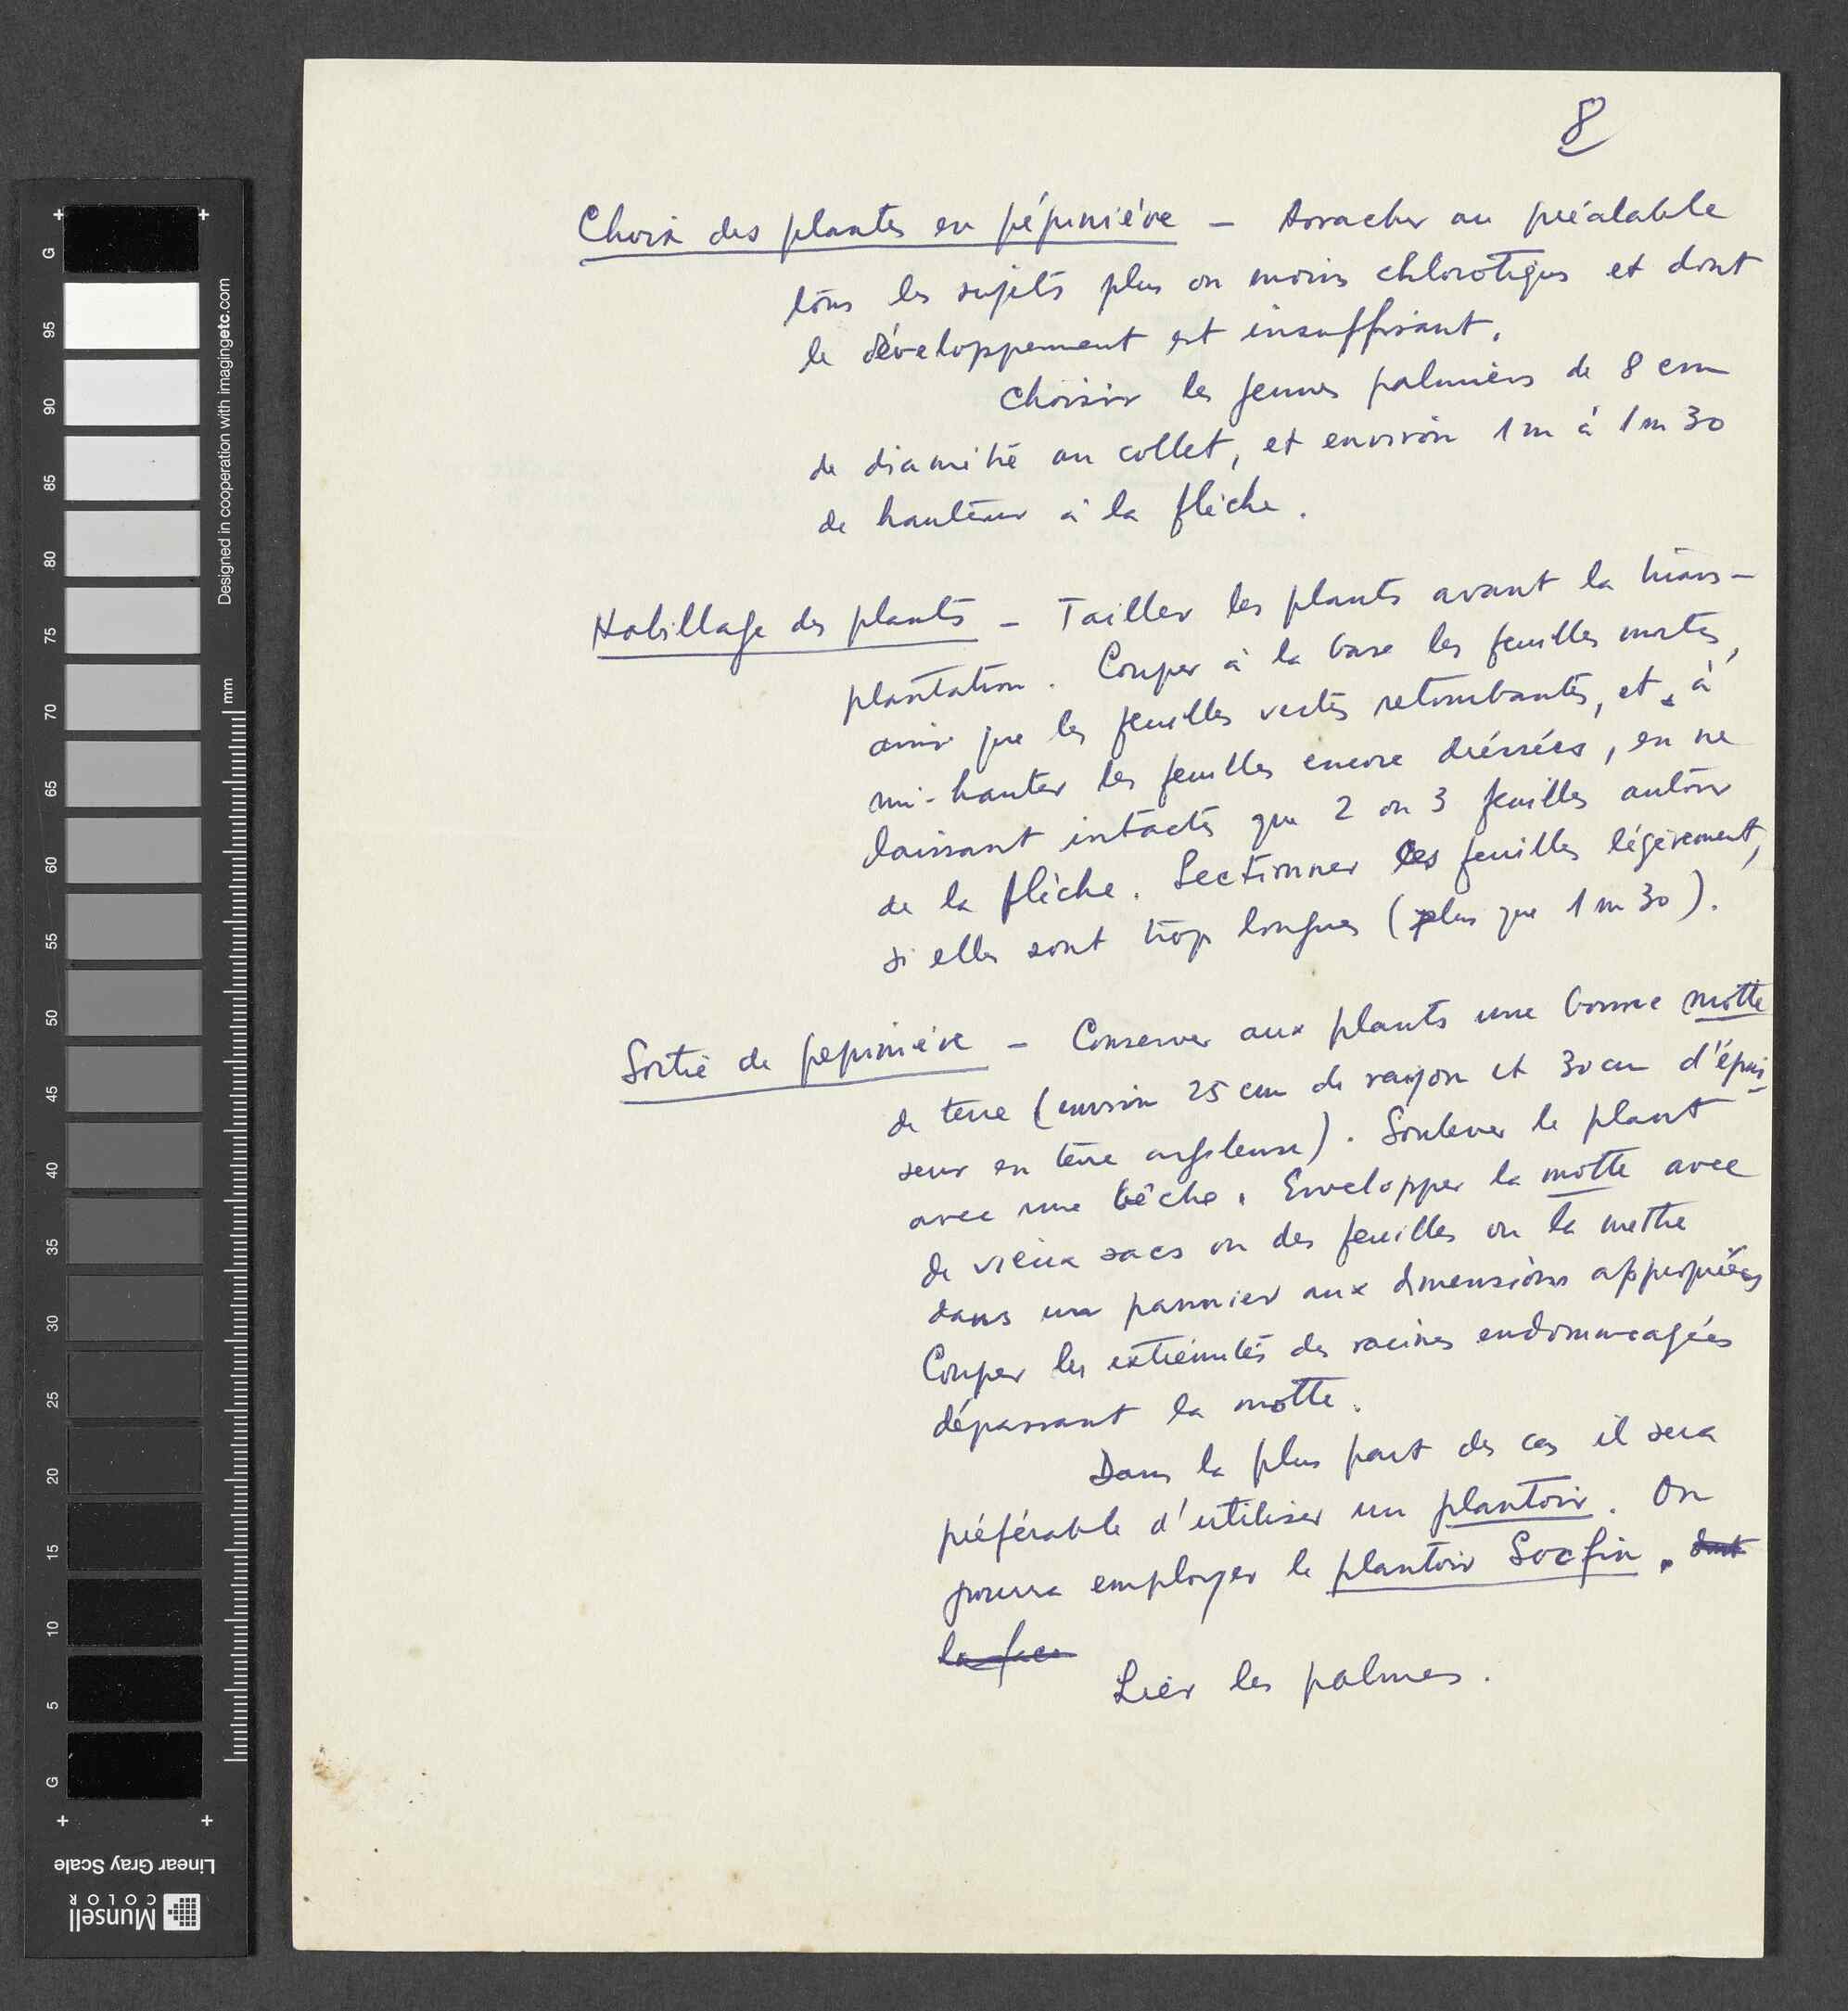 8
Choix des plantes en pépinière – Arracher au préalable
tous les sujets plus ou moins chlorotiques et dont
le développement est insuffisant.
Choisir les jeunes palmiers de 8 cm
de diamètre au collet, et environ 1 m à 1 m 30
de hauteur à la flèche.
Habillage des plants – Tailler les plants avant la trans-
plantation. Couper à la base les feuilles mortes,
ainsi que les feuilles vertes retombantes, et à
mi-hauter les feuilles encore dréssées, en ne
laissant intactes que 2 ou 3 feuilles autour
de la flèche. Sectionner les feuilles légèrement,
si elles sont trop longues (plus que 1 m 30).
Sortie de pepinière – Conserver aux plants une bonne motte
de terre (environ 25 cm de rayon et 30 cm d'épais-
seur en terre argileuse). Soulever le plant
avec une bêche. Envelopper la motte avec
de vieux sacs ou des feuilles ou la mettre
dans un pannier aux dimensions appropriées
Couper les extrémités des racines endommagées
dépassant la motte.
Dans la plus part des cas il sera
préférable d'utiliser un plantoir. On
pourra employer le plantoir Socfin. dont
la face
Lier les palmes.
G 95 90 85 80 75 70 65 60 55 50 45 40 35 30 25 20 15 10 5 G
mm
Designed in cooperation with imagingetc.com
Linear Gray Scale
Munsell
COLOR